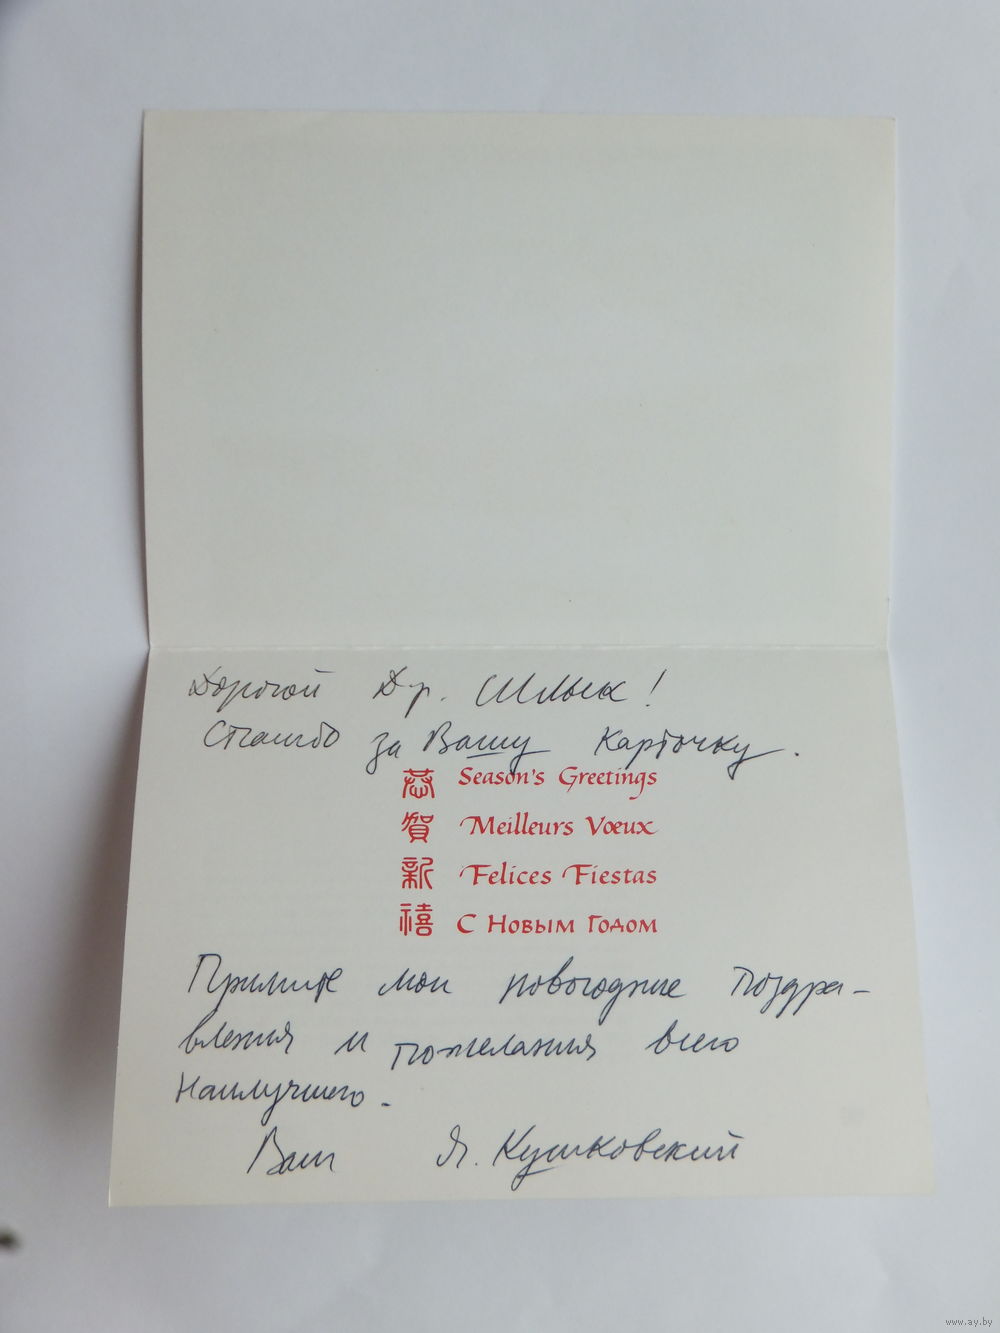 Дорогой Др. Шлык!
Спасибо за Вашу карточку.
恭 Season's Greetings
賀 Meilleurs Vœux
新 Felices Fiestas
禧 С Новым Годом
Примите мои новогодние поздра-
вления и пожелания всего
наилучшего.
Ваш Я. Кушковский
www.ay.by